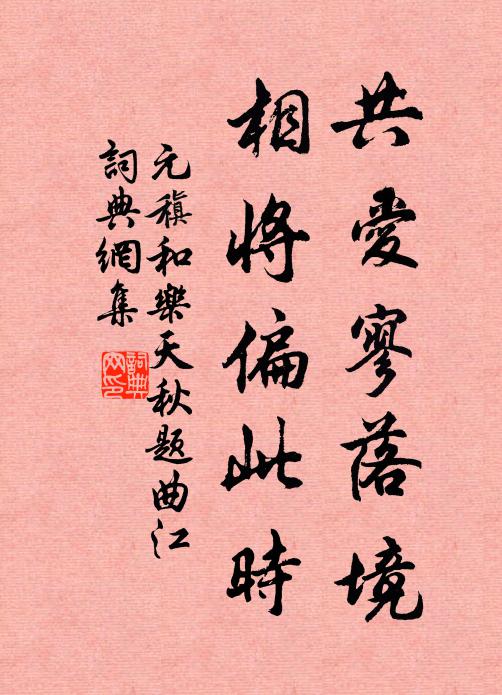 共愛寥落境
相將偏此時
元稹和樂天秋题曲江
詞典網集
詞典
网印